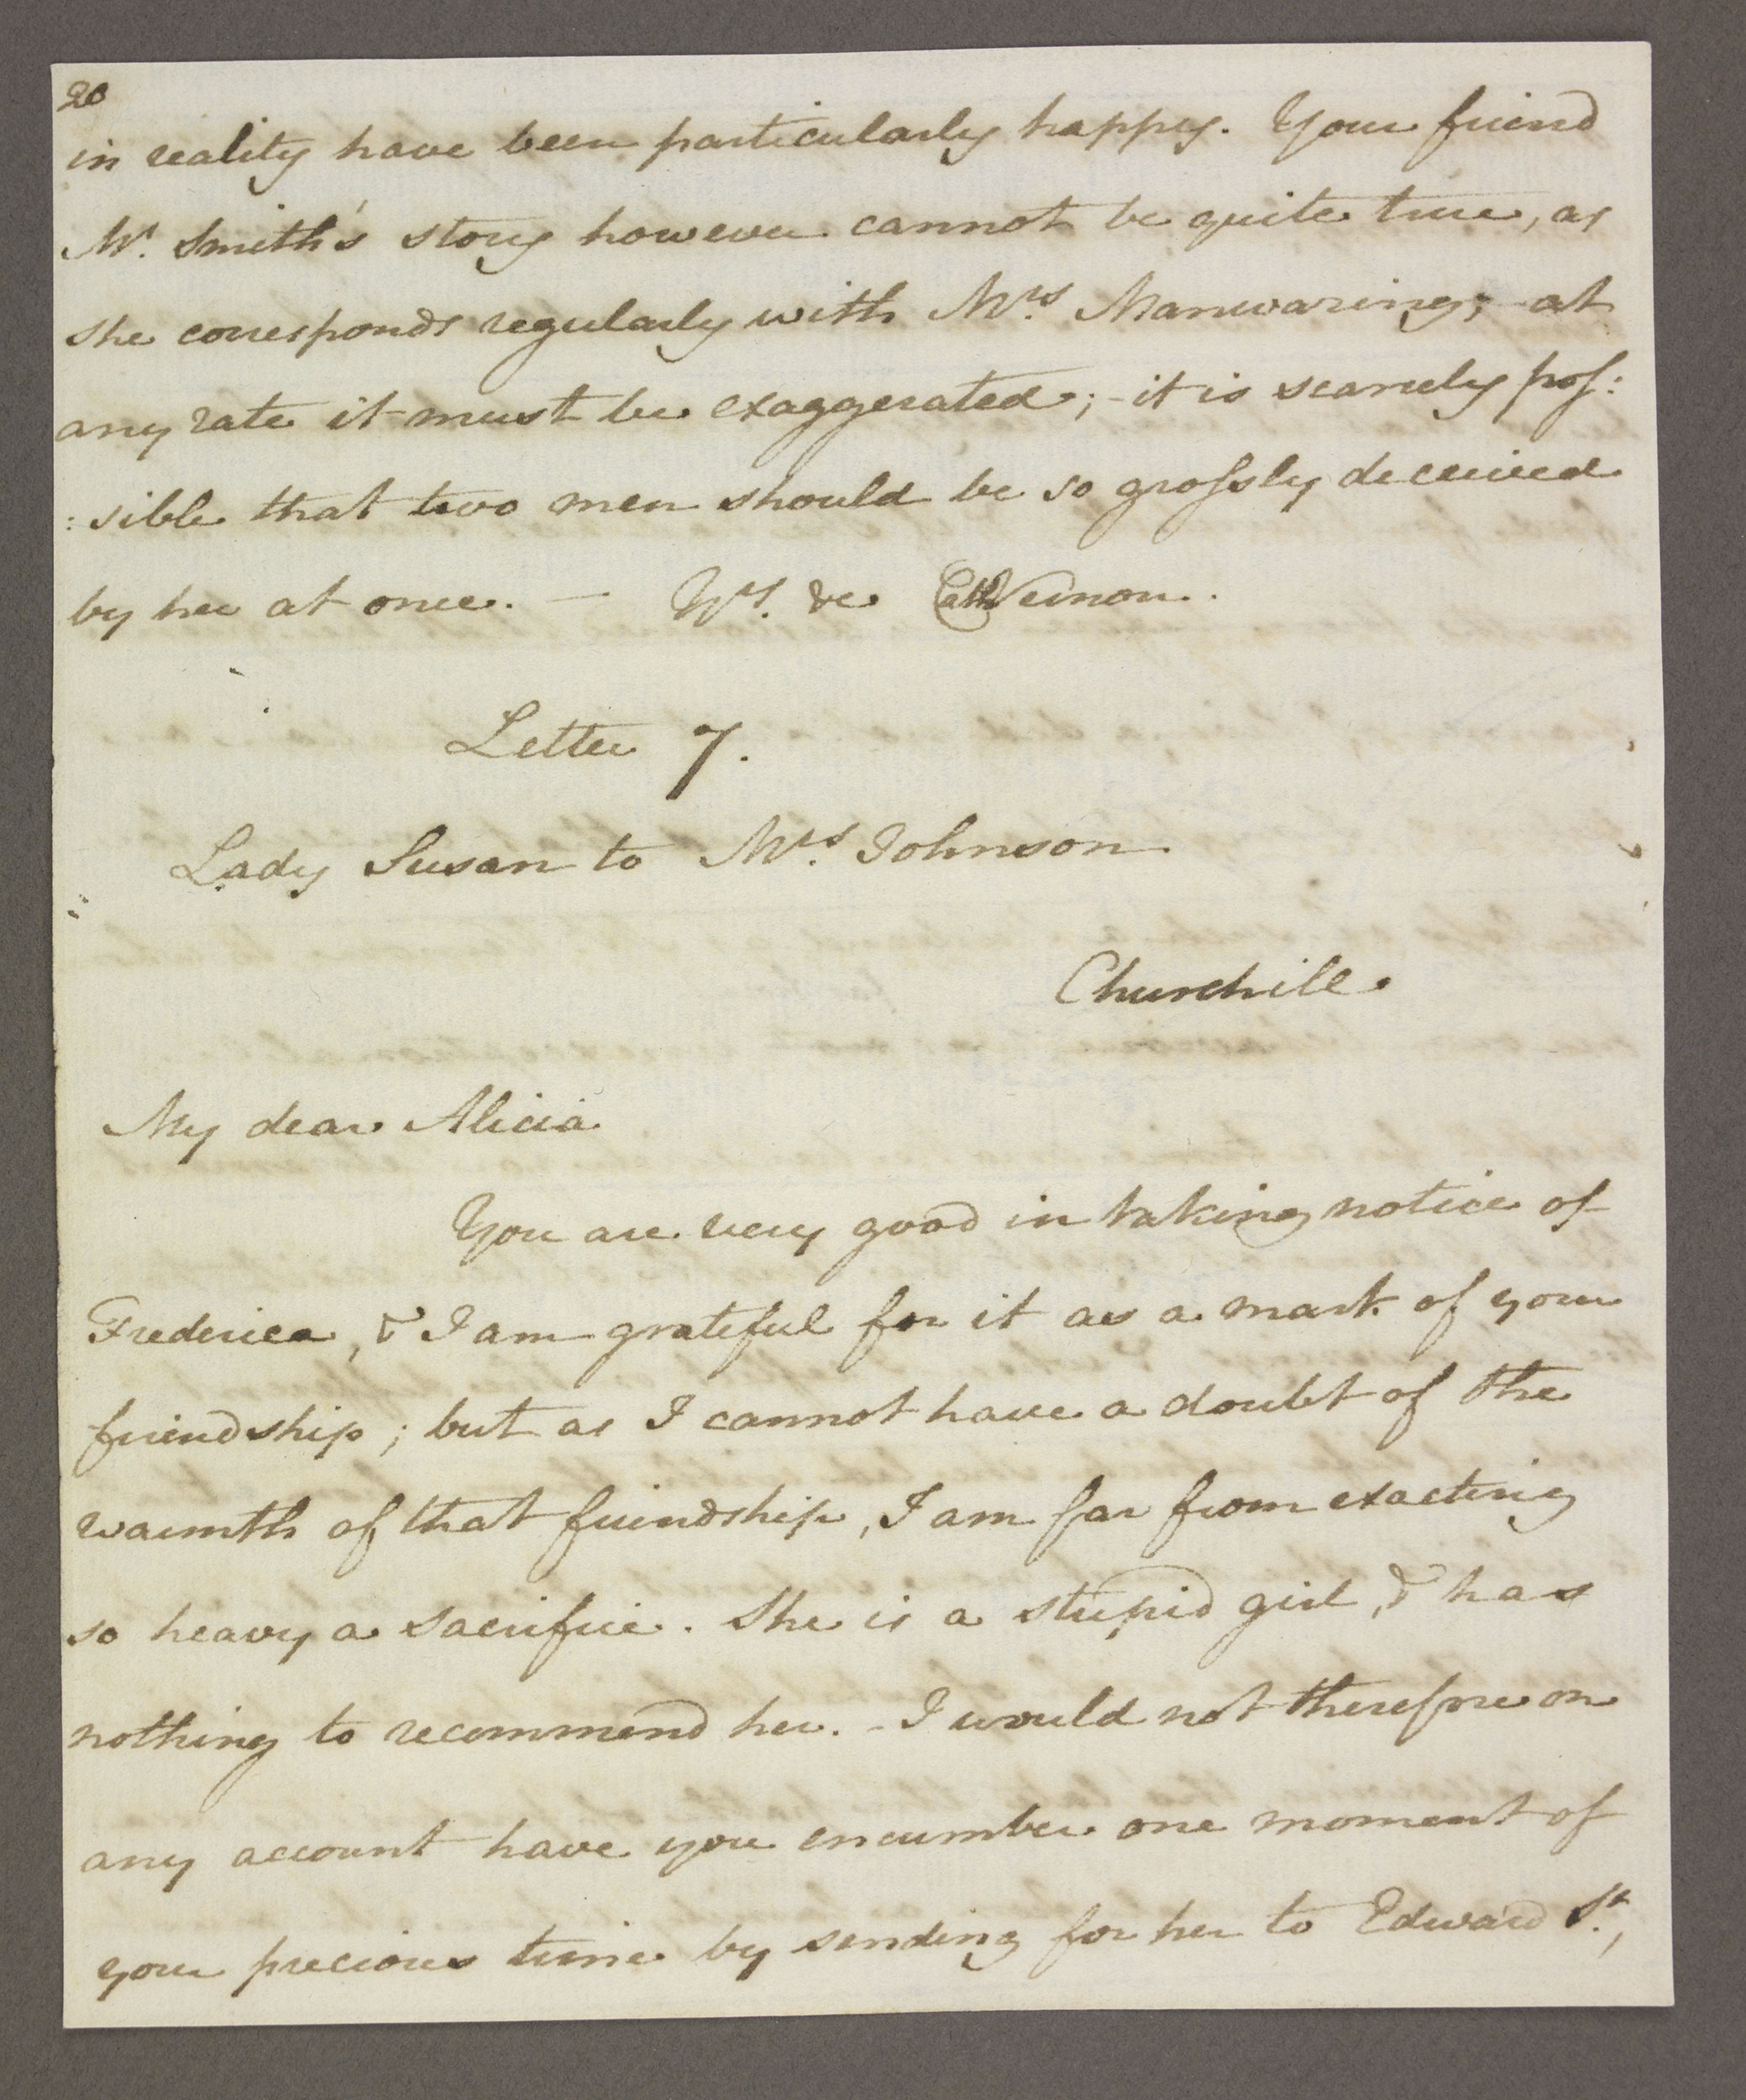 20
in reality have been particularly happy. Your friend
Mr. Smith's story however cannot be quite true, as
she corresponds regularly with Mrs. Manwaring; at
any rate it must be exaggerated; - it is scarcely pos:
:sible that two men should be so grossly deceived
by her at once. — Yrs. &c Cath Vernon.
Letter 7.
Lady Susan to Mrs. Johnson
Churchill.
My dear Alicia
You are very good in taking notice of
Frederica, & I am grateful for it as a mark of your
friendship; but as I cannot have a doubt of the
warmth of that friendship, I am far from exacting
so heavy a sacrifice. She is a stupid girl, & has
nothing to recommend her. - I would not therefore on
any account have you encumber one moment of
your precious time by sending for her to Edward St.,